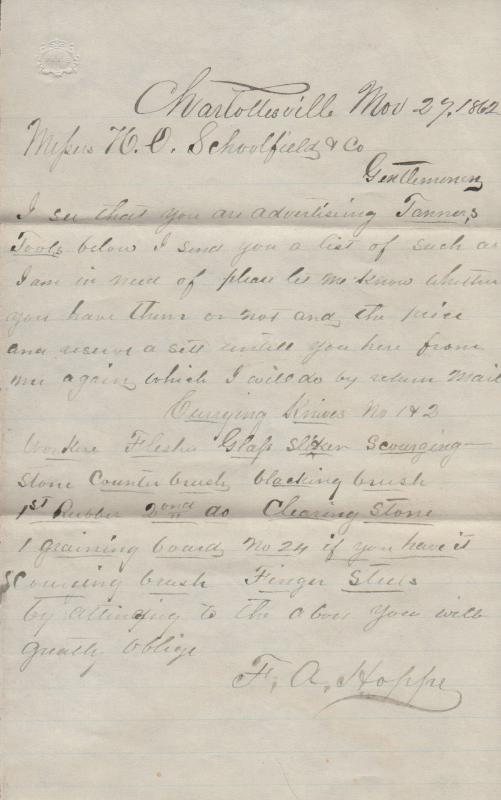 Charlottesville Nov 27, 1862
Messrs H. O. Schoolfield & Co
Gentlemenen
I see that you are advertising Tanners
Tools below I send you a list of such as
I am in need of please let me Know whether
you have them or not and the price
and reserve a sett untill you here from
me again, which I will do by return Mail
Currying Knives No 1 & 2
Flesher Glass Slicker Scourging
Stone Counter brush, blacking brush
1st Rubber 2ond do Clearing Stone
1 graining board, No 24 if you have it
Scouring brush Finger Steels
by attending to the above you will
greatly oblige
F. A. Hoppe